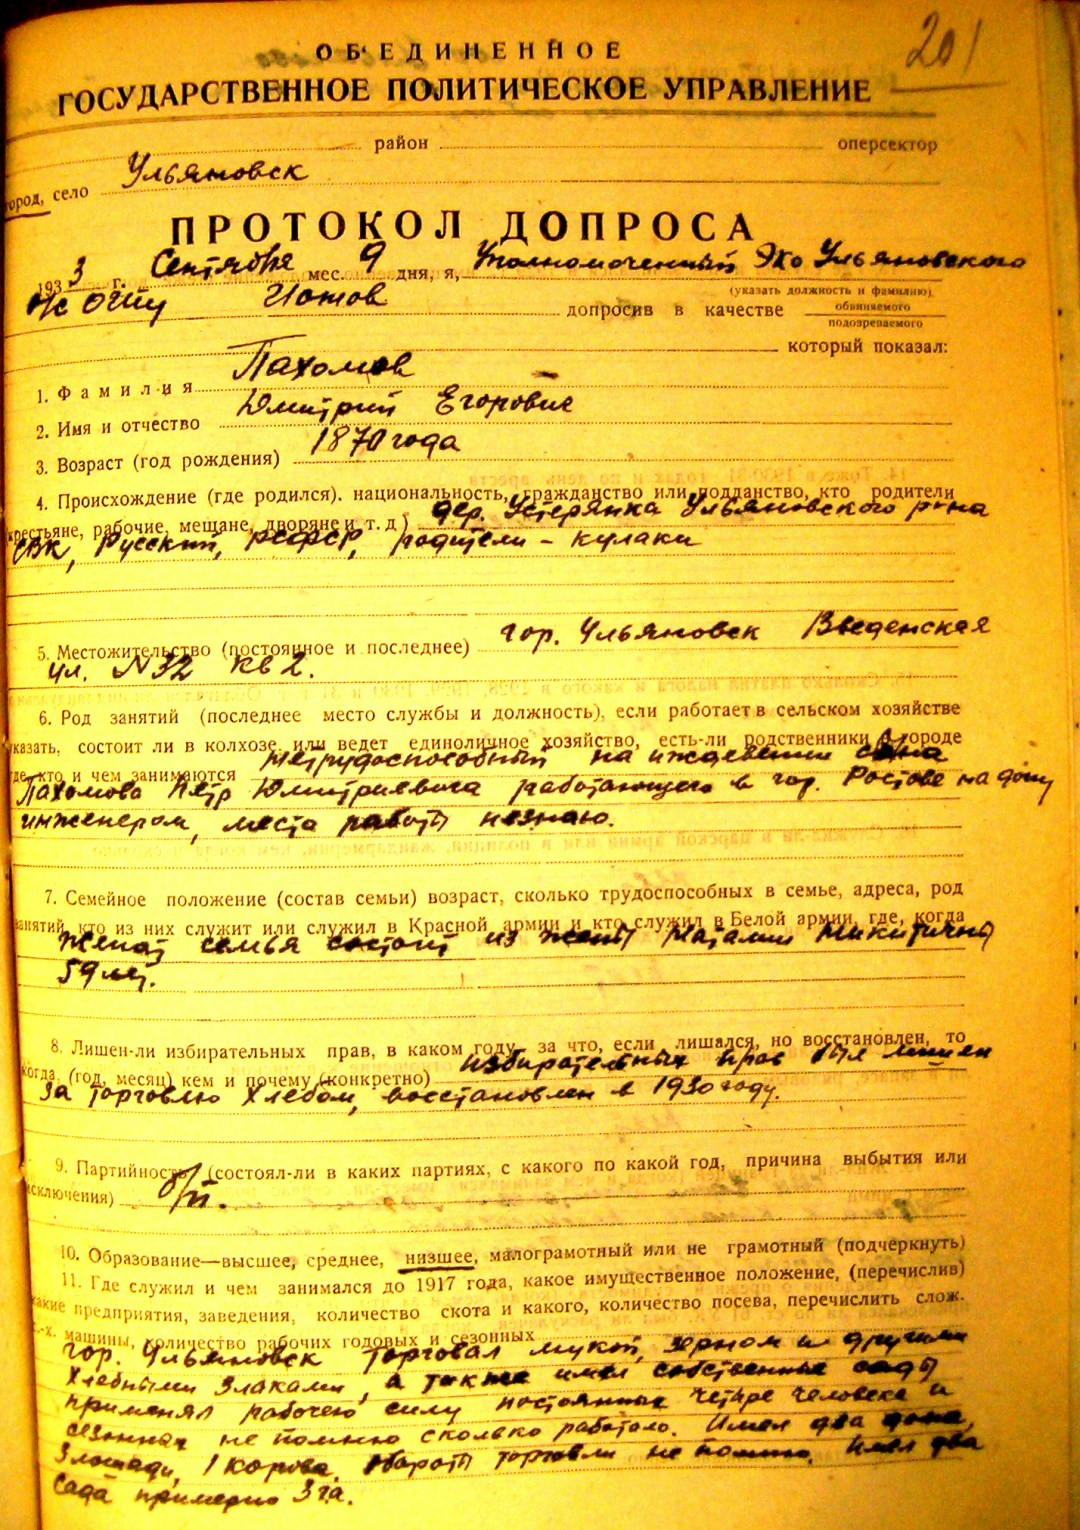 201
ОБ‘ЕДИНЕННОЕ
ГОСУДАРСТВЕННОЕ ПОЛИТИЧЕСКОЕ УПРАВЛЕНИЕ
район оперсектор
город, село Ульяновск
ПРОТОКОЛ ДОПРОСА
193 3 г. Сентября мес. 9 дня, я, Уполномоченный Эко Ульяновского
(указать должность и фамилию)
о/с ОГПУ допросив в качестве обвиняемого
подозреваемого
который показал:
1. Фамилия Пахомов
2. Имя и отчество Дмитрий Егорович
3. Возраст (год рождения) 1870 года
4. Происхождение (где родился). национальность, гражданство или подданство, кто родители
крестьяне, рабочие, мещане, дворяне и т. д) дер. Устерянка Ульяновского р-на
СВК, Русский, РСФСР, родители – кулаки
5. Местожительство (постоянное и последнее) гор. Ульяновск Введенская
ул. N 32 кв 2.
6. Род занятий (последнее место службы и должность), если работает в сельском хозяйстве
указать, состоит ли в колхозе, или ведет единоличное хозяйство, есть-ли родственники в городе
где, кто и чем занимаются нетрудоспособный на иждевении сына
Пахомова Петр Дмитриевича работающего в гор. Ростове на дону
инженером, места работы незнаю.
7. Семейное положение (состав семьи) возраст, сколько трудоспособных в семье, адреса, род
занятий, кто из них служит или служил в Красной армии и кто служил в Белой армии, где, когда
Женат семья состоит из жены Наталии Никитичны
59 лет.
8. Лишен-ли избирательных прав, в каком году, за что, если лишался, но восстановлен, то
когда, (год, месяц) кем и почему (конкретно) избирательных прав был лишен
за торговлю хлебом, восстановлен в 1930 году.
9. Партийность (состоял-ли в каких партиях, с какого по какой год, причина выбытия или
исключения) б/п.
10. Образование—высшее, среднее, низшее, малограмотный или не грамотный (подчеркнуть)
11. Где служил и чем занимался до 1917 года, какое имущественное положение, (перечислив)
какие предприятия, заведения, количество скота и какого, количество посева, перечислить слож.
с.-х. машины, количество рабочих годовых и сезонных
гор. Ульяновск торговал мукой, зерном и другими
хлебными злаками, а также имел собственные сады
применял рабочею силу постоянных четыре человека и
сезонная не помню сколько работало. Имел два дома,
3 лошади, 1 корова, обороты торговли не помню, имел два
сада примерно 3 га.